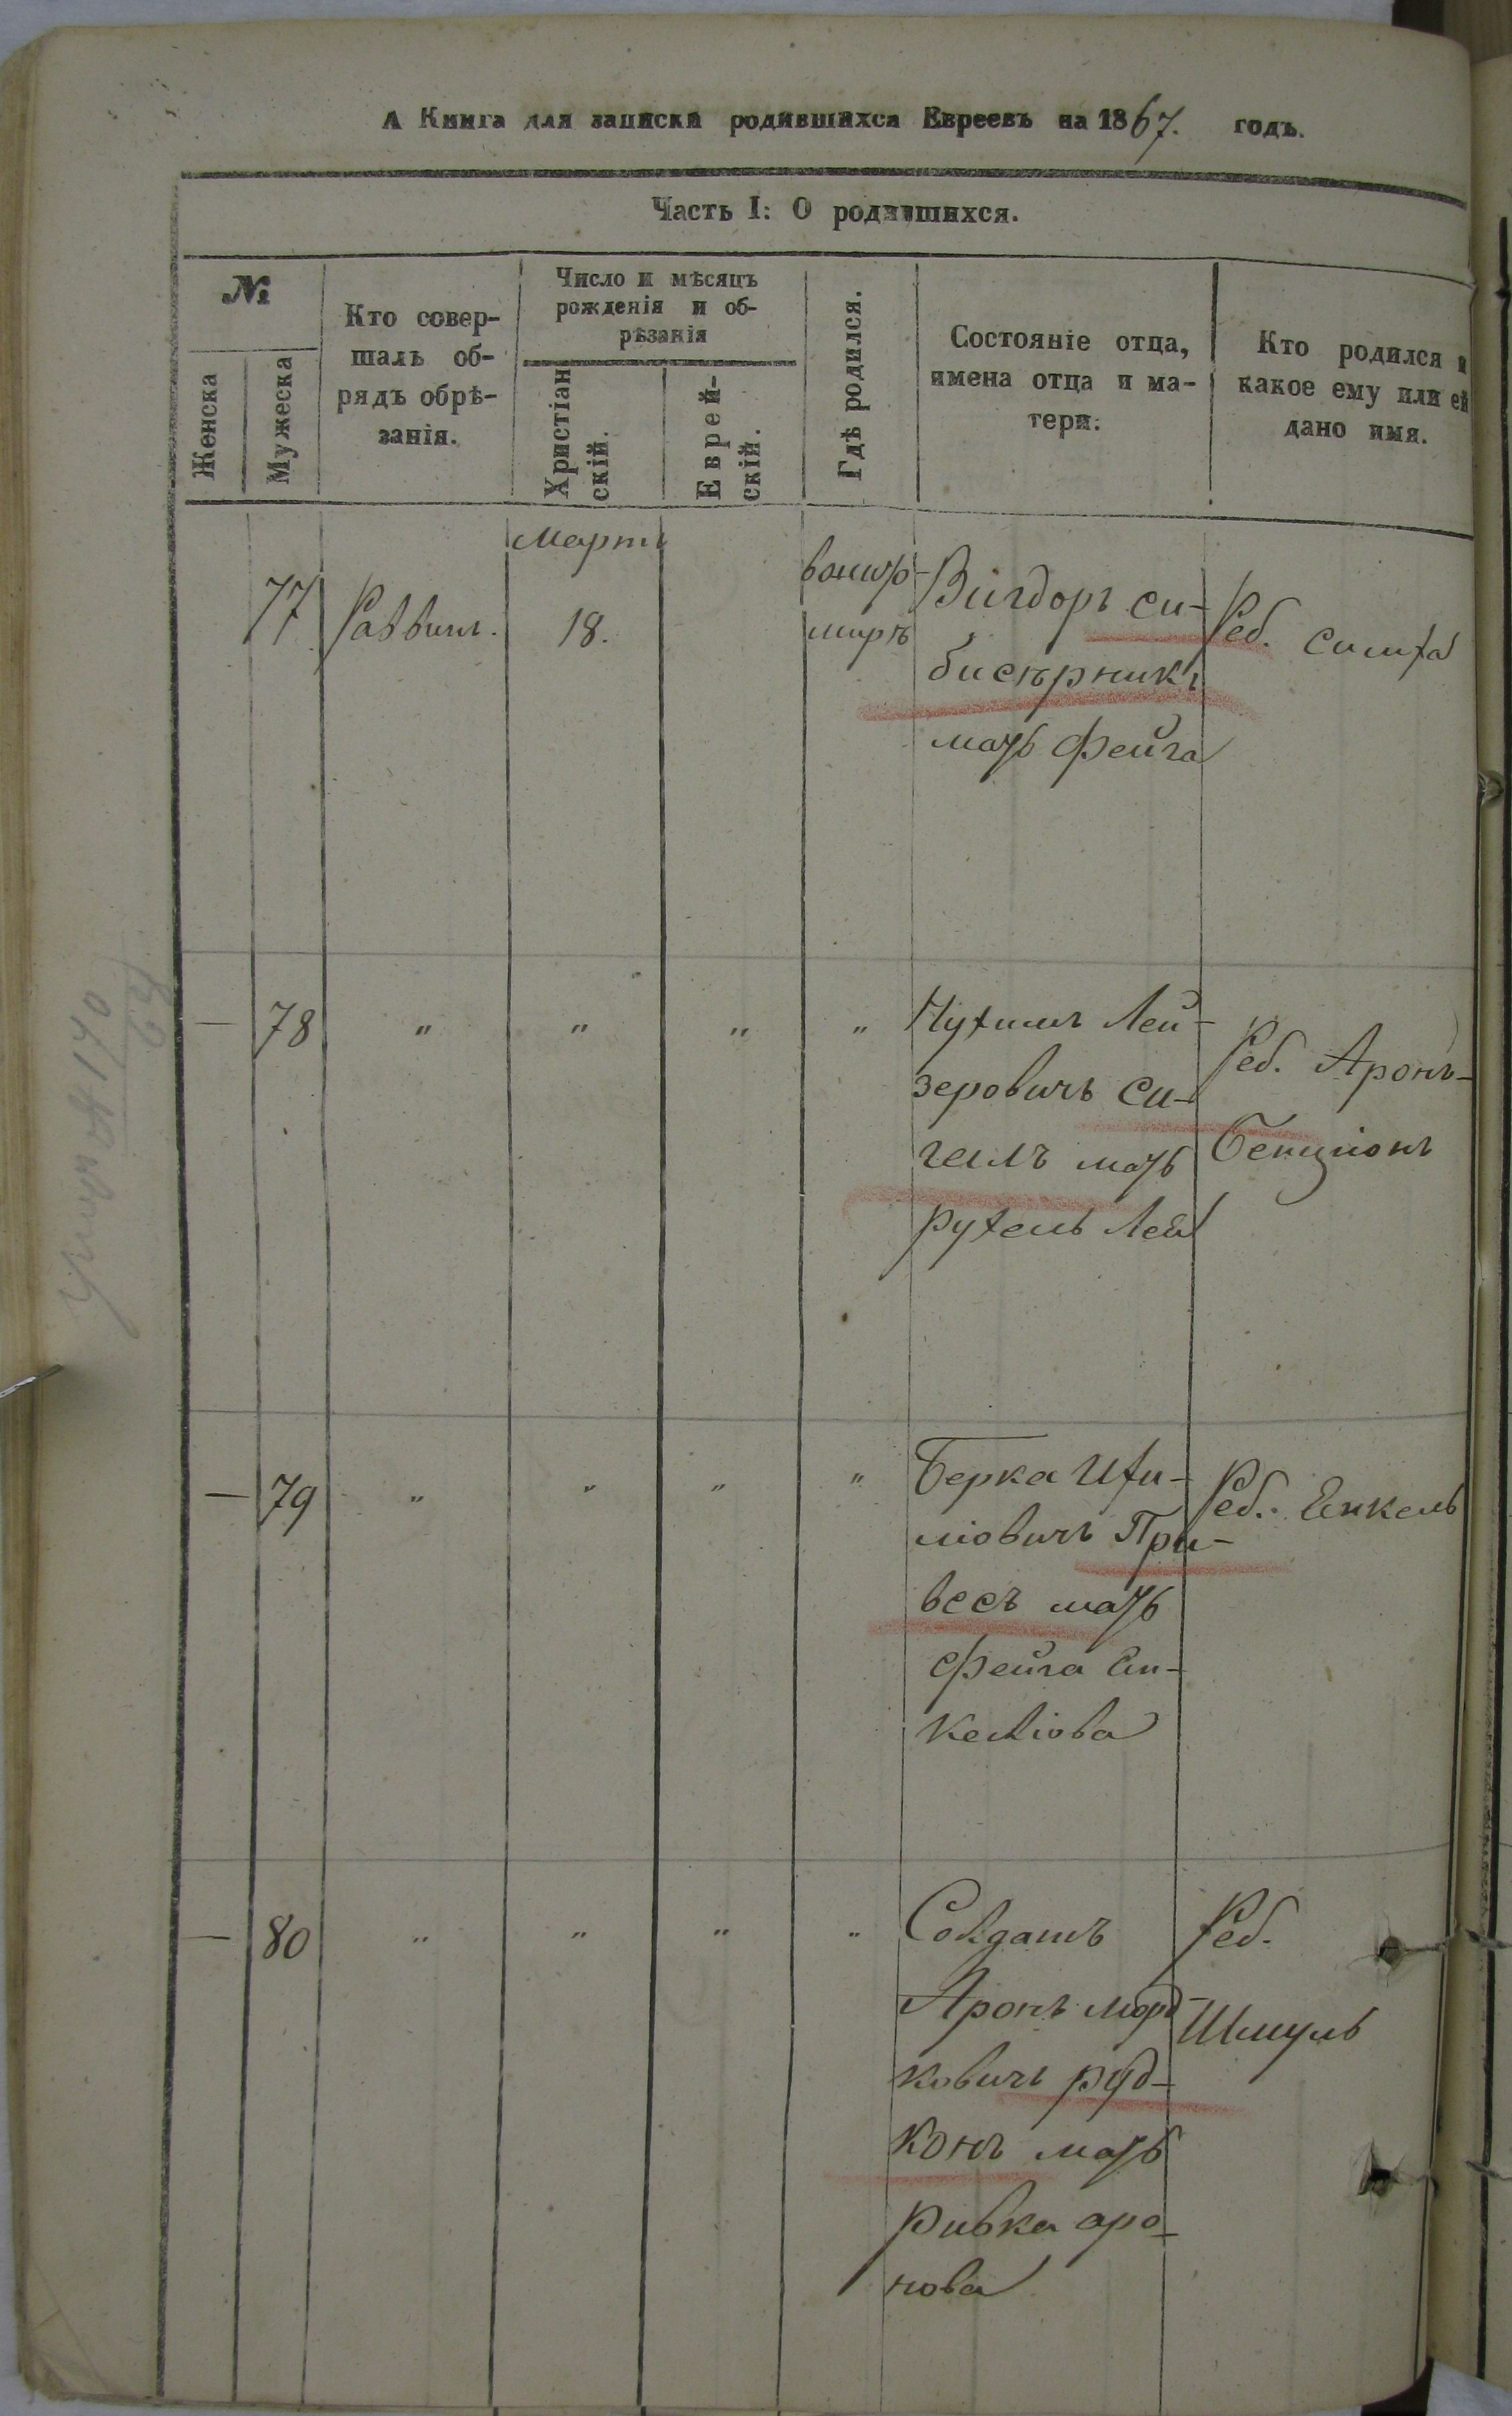 А Книга для записки родившихся Евреевъ на 1867. годъ.
Часть I: О родившихся.
№
Женска
Мужеска
Кто совер-
шалъ об-
рядъ обрѣ-
занія.
Число и мѣсяцъ
рожденія и об-
рѣзанія
Христіан
скій.
Еврей-
скій.
Гдѣ родился.
Состояніе отца,
имена отца и ма-
тери.
Кто родился и
какое ему или ей
дано имя.
Мартъ
77
Раввинъ.
18.
мирѣ
Вигдоръ Си-
бисѣрникъ
мать Фейга
Реб. Симха
— 78 " " " "
Нухимъ Лей-
зеровичъ Си-
галъ мать
Рухель Лея
Реб. Аронъ-
Бенціонъ
— 79 " " " "
Берка Ихи-
ліовичъ При-
весъ мать
Фейга Ян-
келіова
Реб. Янкель
— 80 " " " "
Солдатъ
Аронъ Морд-
ковичъ Руд-
конъ мать
Ривка Аро-
нова
Реб.
Шмуль
№ 170